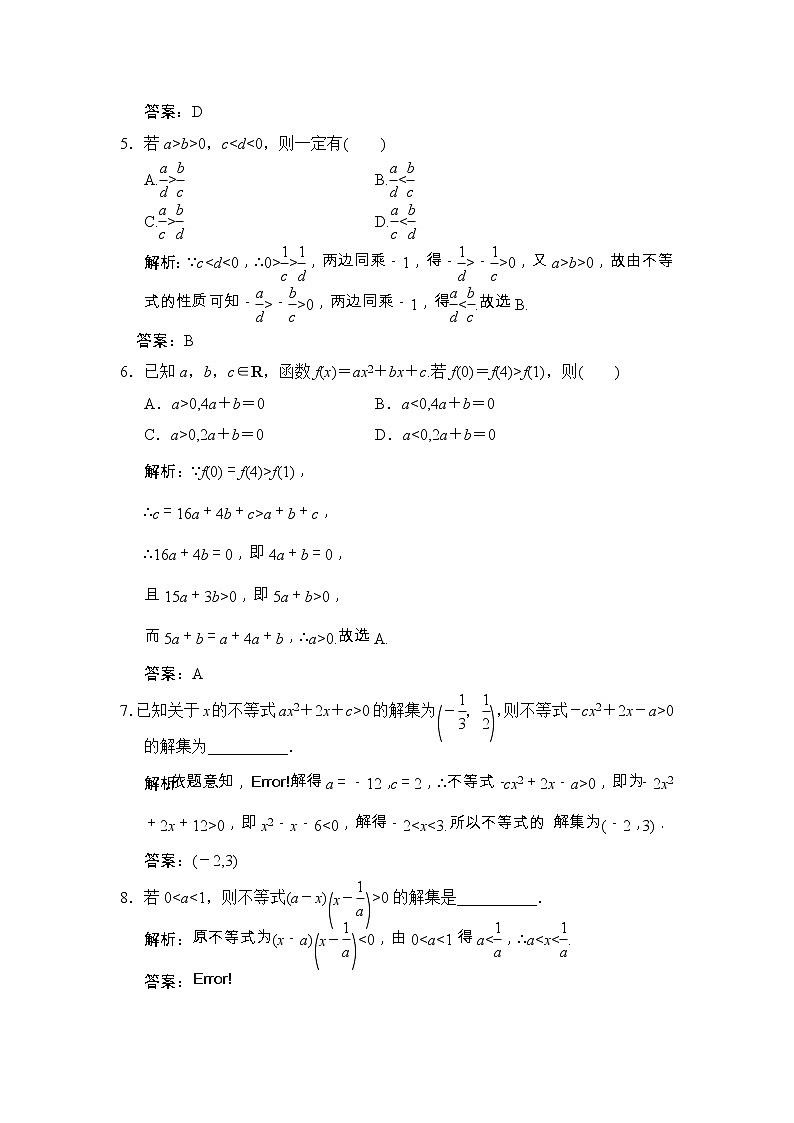 答案：D
5．若a>b>0，c<d<0，则一定有(　　)
A.a/d>b/c　　B.a/d<b/c
C.a/c>b/d　　D.a/c<b/d
解析：∵c<d<0，∴0>1/c>1/d，两边同乘－1，得－1/d>－1/c>0，又a>b>0，故由不等
式的性质可知－a/d>－b/c>0，两边同乘－1，得a/d<b/c.故选B.
答案：B
6．已知a，b，c∈R，函数f(x)＝ax²＋bx＋c.若f(0)＝f(4)>f(1)，则(　　)
A．a>0,4a＋b＝0　　B．a<0,4a＋b＝0
C．a>0,2a＋b＝0　　D．a<0,2a＋b＝0
解析：∵f(0)＝f(4)>f(1)，
∴c＝16a＋4b＋c>a＋b＋c，
∴16a＋4b＝0，即4a＋b＝0，
且15a＋3b>0，即5a＋b>0，
而5a＋b＝a＋4a＋b，∴a>0.故选A.
答案：A
7.已知关于x的不等式ax²＋2x＋c>0的解集为(－1/3，1/2)，则不等式－cx²＋2x－a>0
的解集为__________．
解析依题意知，Error!解得a＝－12，c＝2，∴不等式－cx²＋2x－a>0，即为－2x²
＋2x＋12>0，即x²－x－6<0，解得－2<x<3.所以不等式的 解集为(－2，3)．
答案：(－2,3)
8．若0<a<1，则不等式(a－x)(x－1/a)>0的解集是__________．
解析：原不等式为(x－a)(x－1/a)<0，由0<a<1得a<1/a，∴a<x<1/a.
答案：Error!